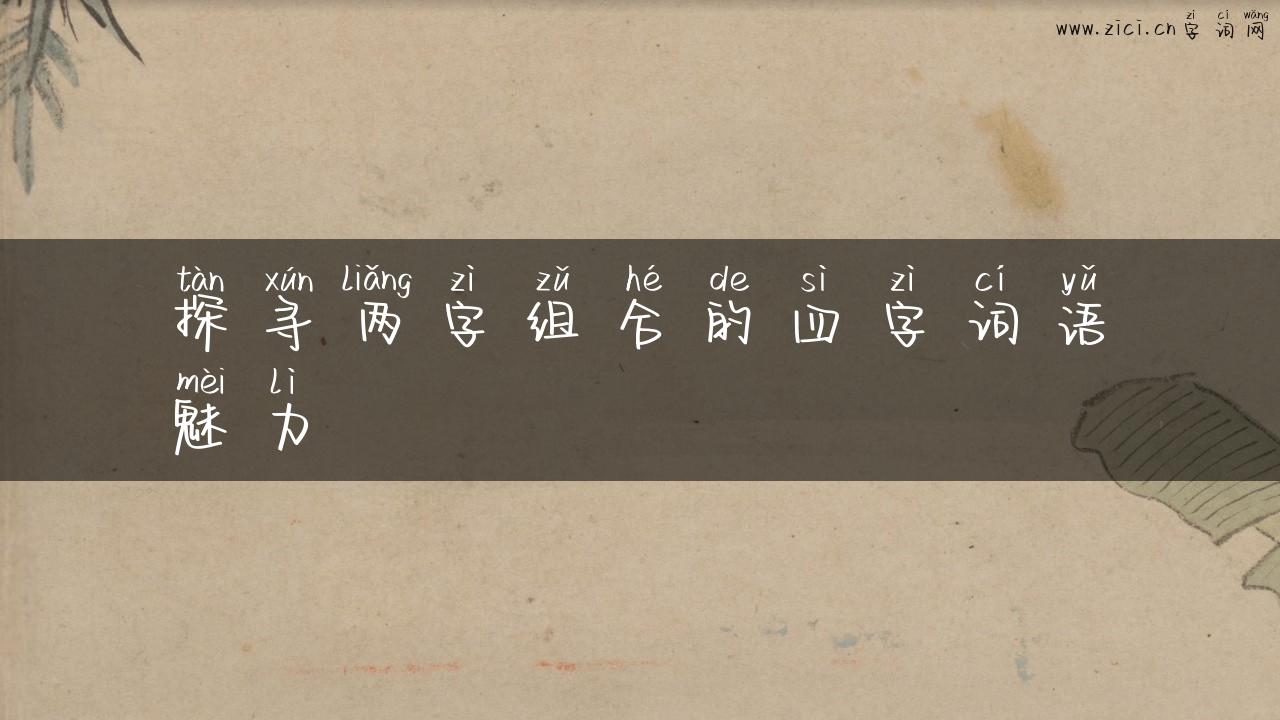 zì cí wǎng
www.zici.cn 字词网
tàn xún liǎng zì zǔ hé de sì zì cí yǔ
探寻两字组合的四字词语
mèi lì
魅力